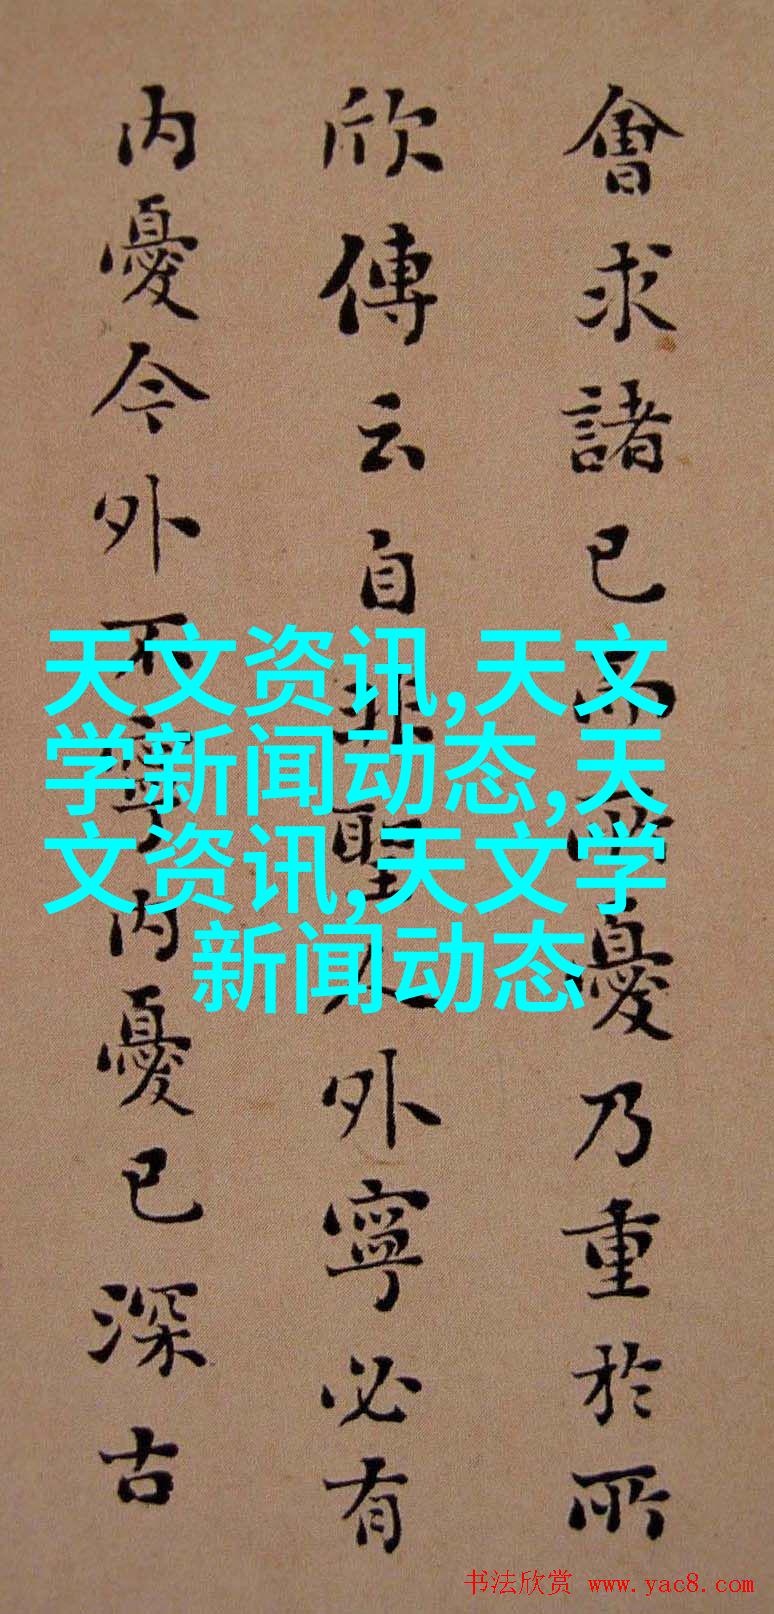 會求諸已而所憂乃重於所
欣傳云自非聖人外寧必有
内憂今外不寧内憂已深古
天文资讯,天文
学新闻动态,天
文资讯,天文学
新闻动态
书法欣赏 www.yac8.com